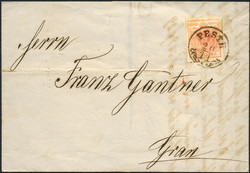 PESTH
Herrn
Franz Gantner
Gran